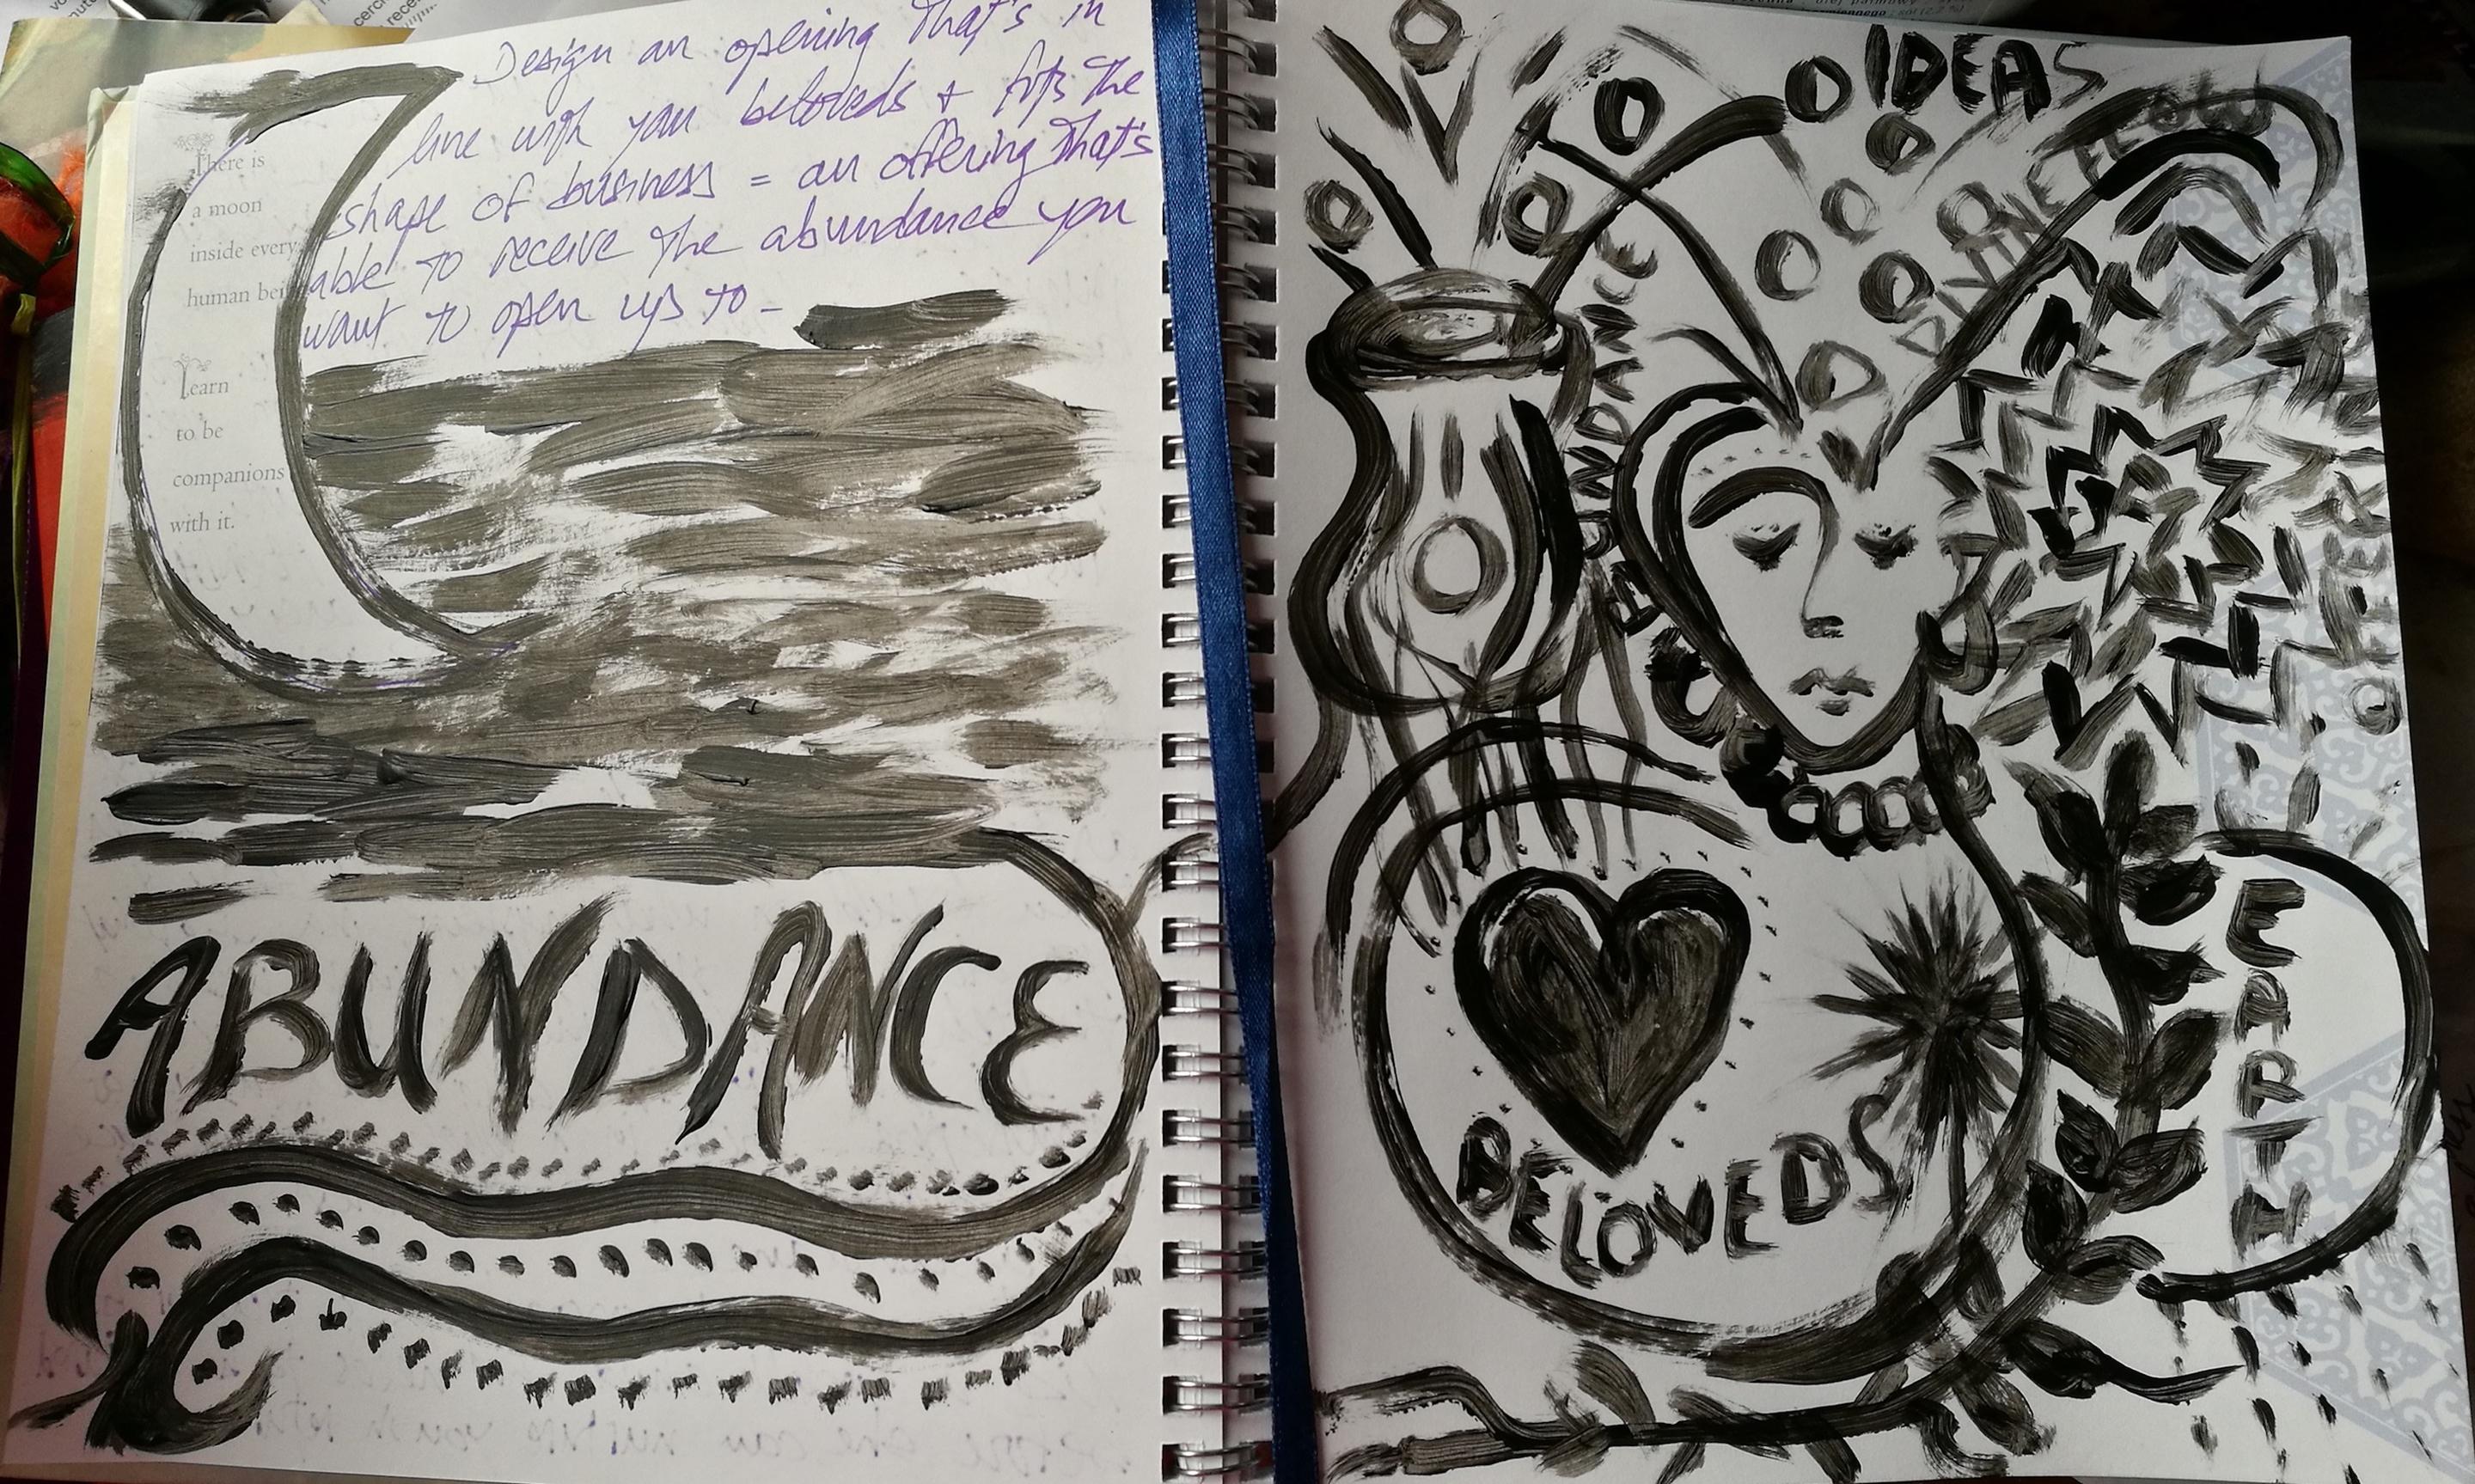 Design an opening that's in
line with your beloveds + fits the
shape of business = an offering that's
able to receive the abundance you
want to open up to -
There is
a moon
inside every
human bei
Learn
to be
companions
with it.
ABUNDANCE
IDEAS
DIVINE FLOW
ABUNDANCE
BELOVEDS
EARTH